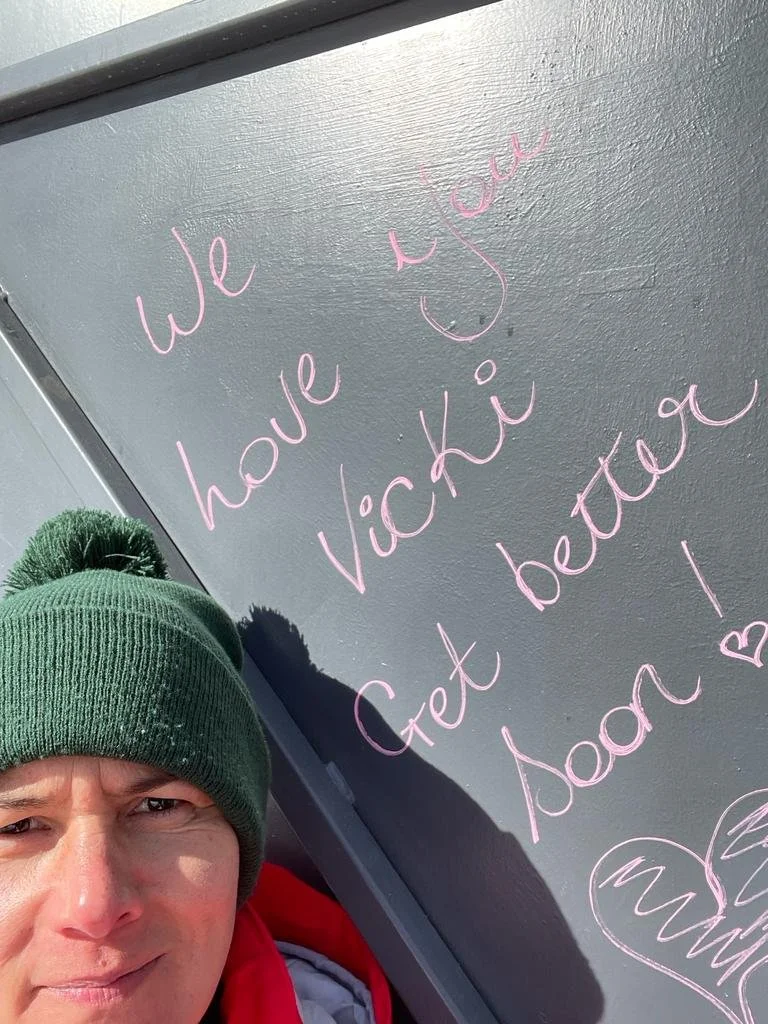 We love you
Vicki
Get better
soon!